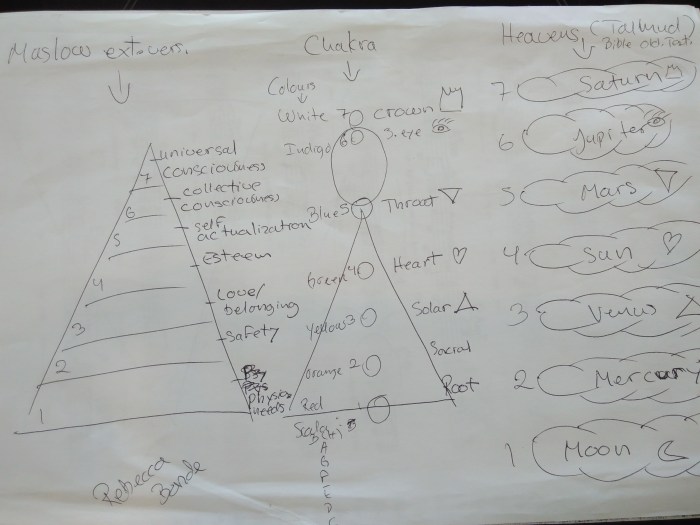 Maslow ext.vers.
universal
consciousness
7
collective
consciousness
6
self
actualization
5
Esteem
4
Love/
belonging
3
safety
2
physical
needs
1
Rebecca
Bonde
Chakra
Colours
White 7 crown
3. eye
Indigo 6
Blue 5 Throat
Green 4 Heart
Yellow 3 Solar
Orange 2 Sacral
Red 1 Root
A
G
F
E
D
C
Heavens, (Talmud,
Bible Old. Test.
7 Saturn
6 Jupiter
5 Mars
4 Sun
3 Venus
2 Mercury
1 Moon